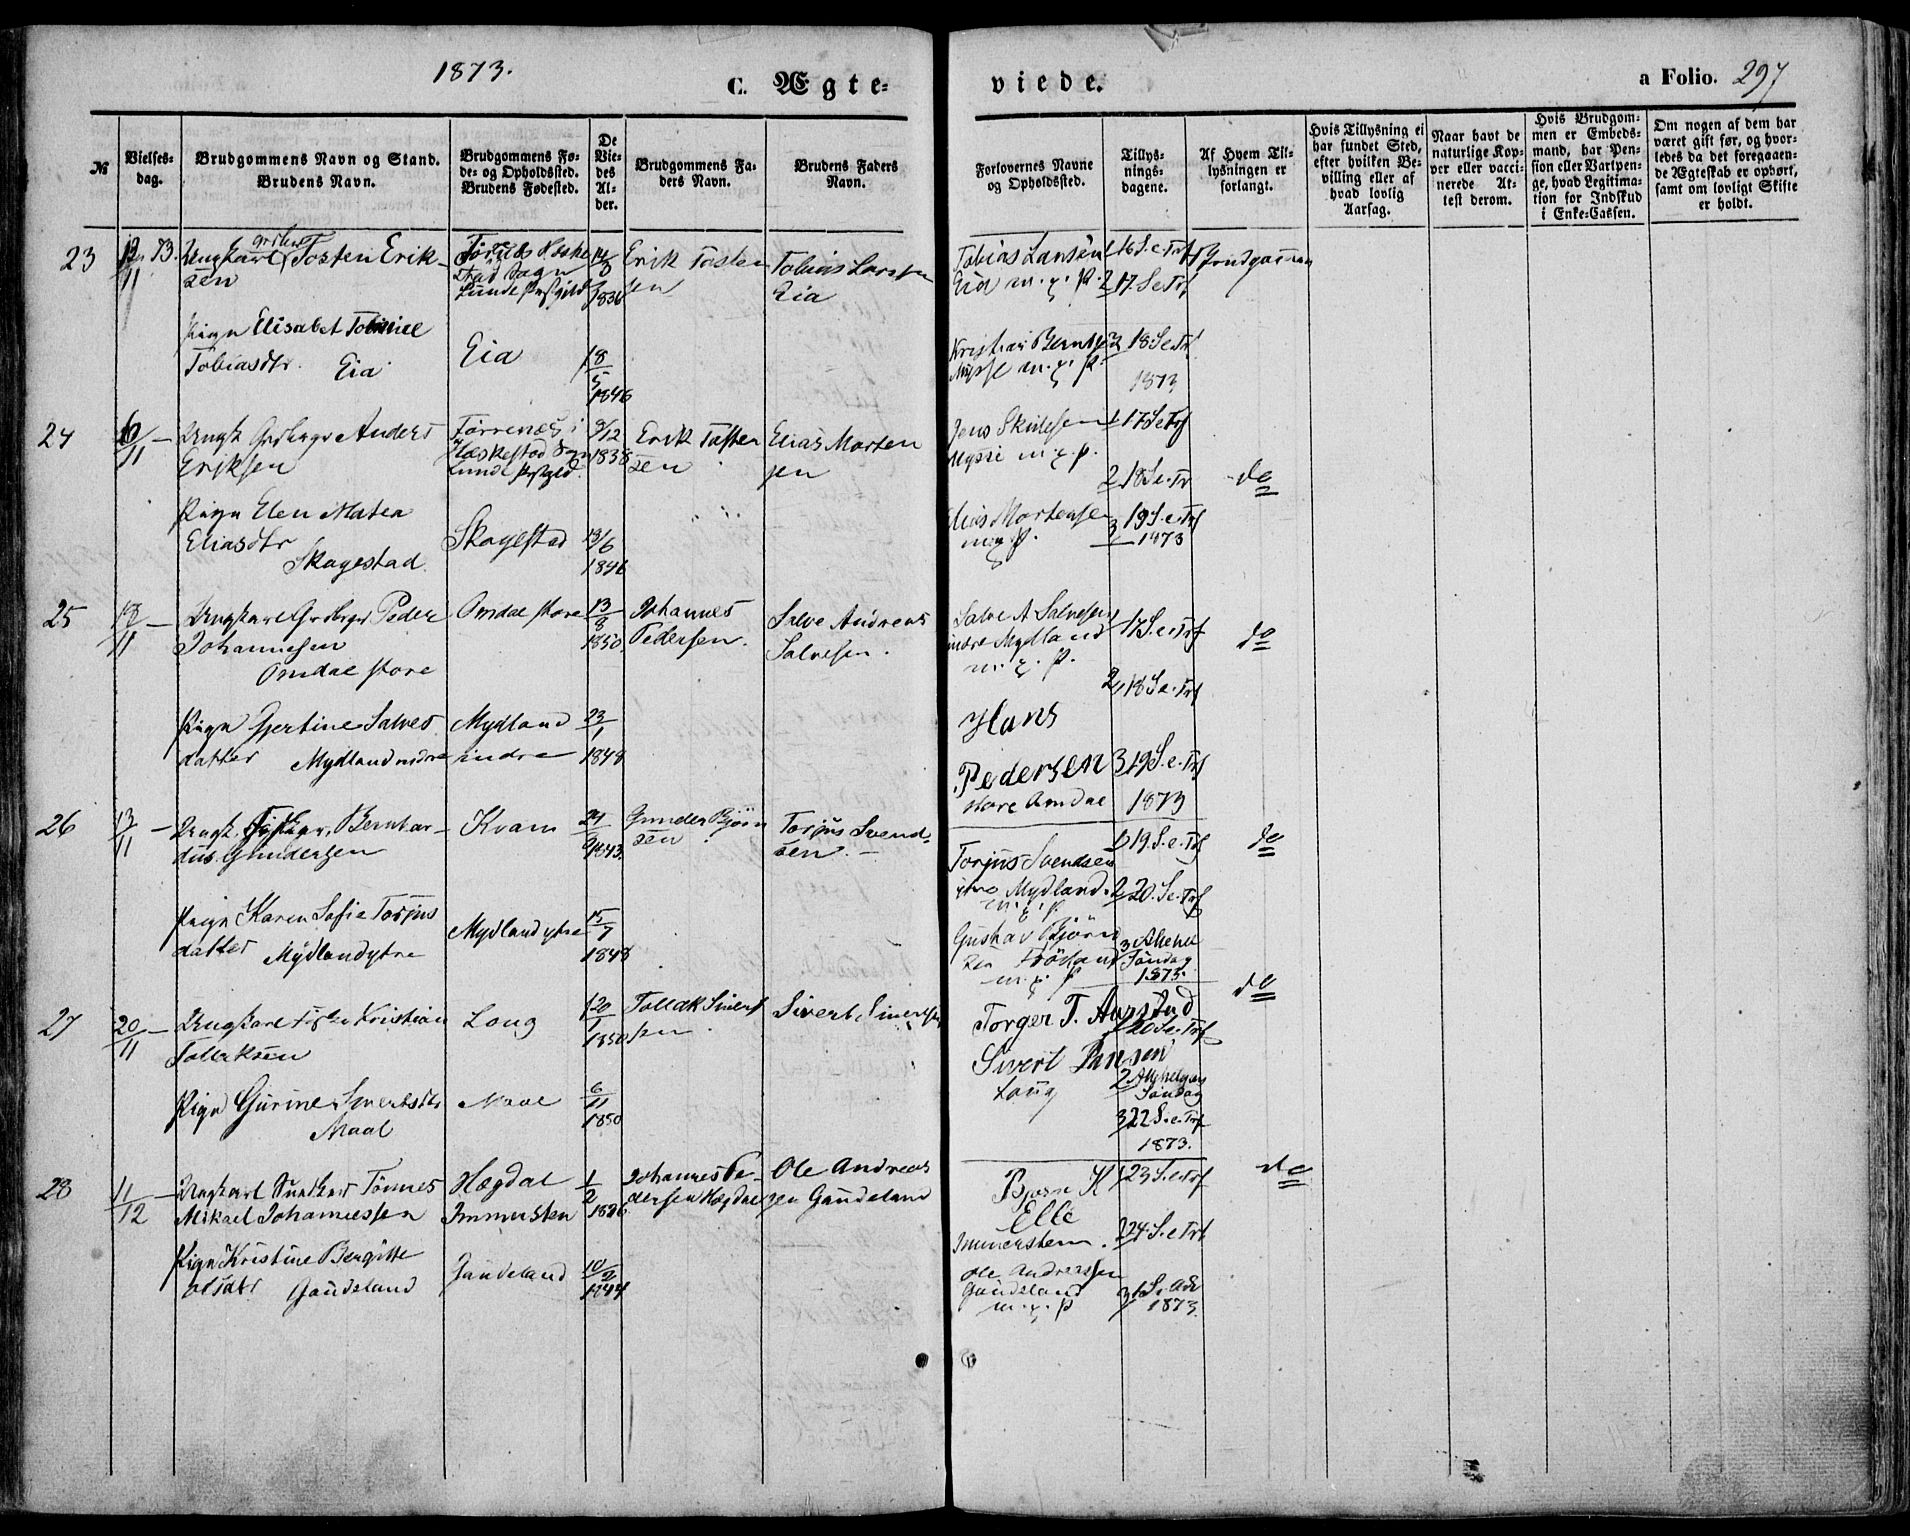 1873.
C. Ægte-
viede.
a Folio. 297
№
Vielses-
dag.
Brudgommens Navn og Stand.
Brudens Navn.
Brudgommens Fø-
de- og Opholdssted.
Brudens Fødested.
De
Vie-
des
Al-
der.
Brudgommens Fa-
ders Navn.
Brudens Faders
Navn.
Forlovernes Navne
og Opholdssted.
Tillys-
nings-
dagene.
Af Hvem Til-
lysningen er
forlangt.
Hvis Tillysning ei
har fundet Sted,
efter hvilken Be-
villing eller af
hvad lovlig
Aarsag.
Naar havt de
naturlige Kop-
per eller vacci-
nerede At-
test derom.
Hvis Brudgom-
men er Embeds-
mand, har Pen-
sion eller Vartpen-
ge, hvad Legitima-
tion for Indskud
i Enke-Cassen.
Om nogen af dem har
været gift før, og hvor-
ledes da det foregaaen-
de Ægteskab er ophört,
samt om lovligt Skifte
er holdt.
23
11
73.
Ungkarl Tosten Erik-
sen
1836
Erik Tosten
sen
Tobias Larsen
Eia
Tobias Larsen
Eia m. f. P.
1 16 S. e. Trf
2 17. S. e. Trf
Brudgommen
Pigen Elisabet
Tobiasdtr. Eia
Eia
18
5
1846
Kristian Berntsen
m. f. P.
3 18 S. e. Trf
1873
24
6
11
Ungk Grdbrgr Anders
Eriksen
Tørrenes i
Hæskestad Sogn
Lunde Prstgjld.
9/12
1838
Erik Tosten
sen
Elias Morten
sen
Jens Skulesen
m. f. P.
1 17 S e Trf
2 18 S. e. Tr
do
Pigen Elen Matea
Eliasdtr
Skagestad
Skagestad
13/6
1846
Elias Mortensen
m. f. P.
3 19 S. e. Trf
1873
25
11
Ungkarl Grdbrgr Peder
Johannesen
Omdal store
Omdal store
13
8
1850
Johannes
Pedersen.
Salve Andreas
Salvesen.
Salve A Salvesen
indre Mydland
m. f. P.
1 17 S. e. Trf
do
2 18 S e. Trf
Pigen Gjertine Salves
datter Mydland indre
Mydland
indre
23
1
1848
Hans
Pedersen
store Omdal
3 19 S. e. Trf
1873
26
13
11
Ungk. Bernhar-
dus Gundersen
Kvam
24
9
1843.
Gunder Bjørn
sen
Torjus Svend-
sen.
Torjus Svendsen
ytre Mydland.
m. f. P.
1 19 S. e. Trf
2 20. S e. Trf
do
Pigen Karen Sofie Torjus
datter Mydland ytre
Mydland ytre
15
7
1848
Gustav Bjørn
sen Frøiland
m. f. P
3 Alleh
Søndag
1873.
27
20
11
Ungkarl Kristian
Tollaksen
Loug
20
1
1850
Tollak Sivert
sen
Sivert Sivertsen
Torger T. Aarstad
1 20 S. e. Trf
do
Sivert Hansen
Loug
2 Allehelgens
Søndag
Pigen Gurine Sivertsdtr
Maal
Maal
6
11
1850
3 22 S. e. Trf
1873.
28
11
12
Ungkarl Tønnes
Mikael Johannessen
Hægdal
Immersten
1
2
1826
Johannes Pe-
dersen Hægdal
Ole Andreas
sen Gaudeland
Bjørn H
Elle
Immerstein.
1 23 S. e Trf
2 24. S. e Trf
do
Pigen Kristine Bergitte
Olsdtr Gaudeland
Gaudeland
10
2
1844
Ole Andreassen
Gaudeland
m. f. P
3 1 S. i Adv
1873.